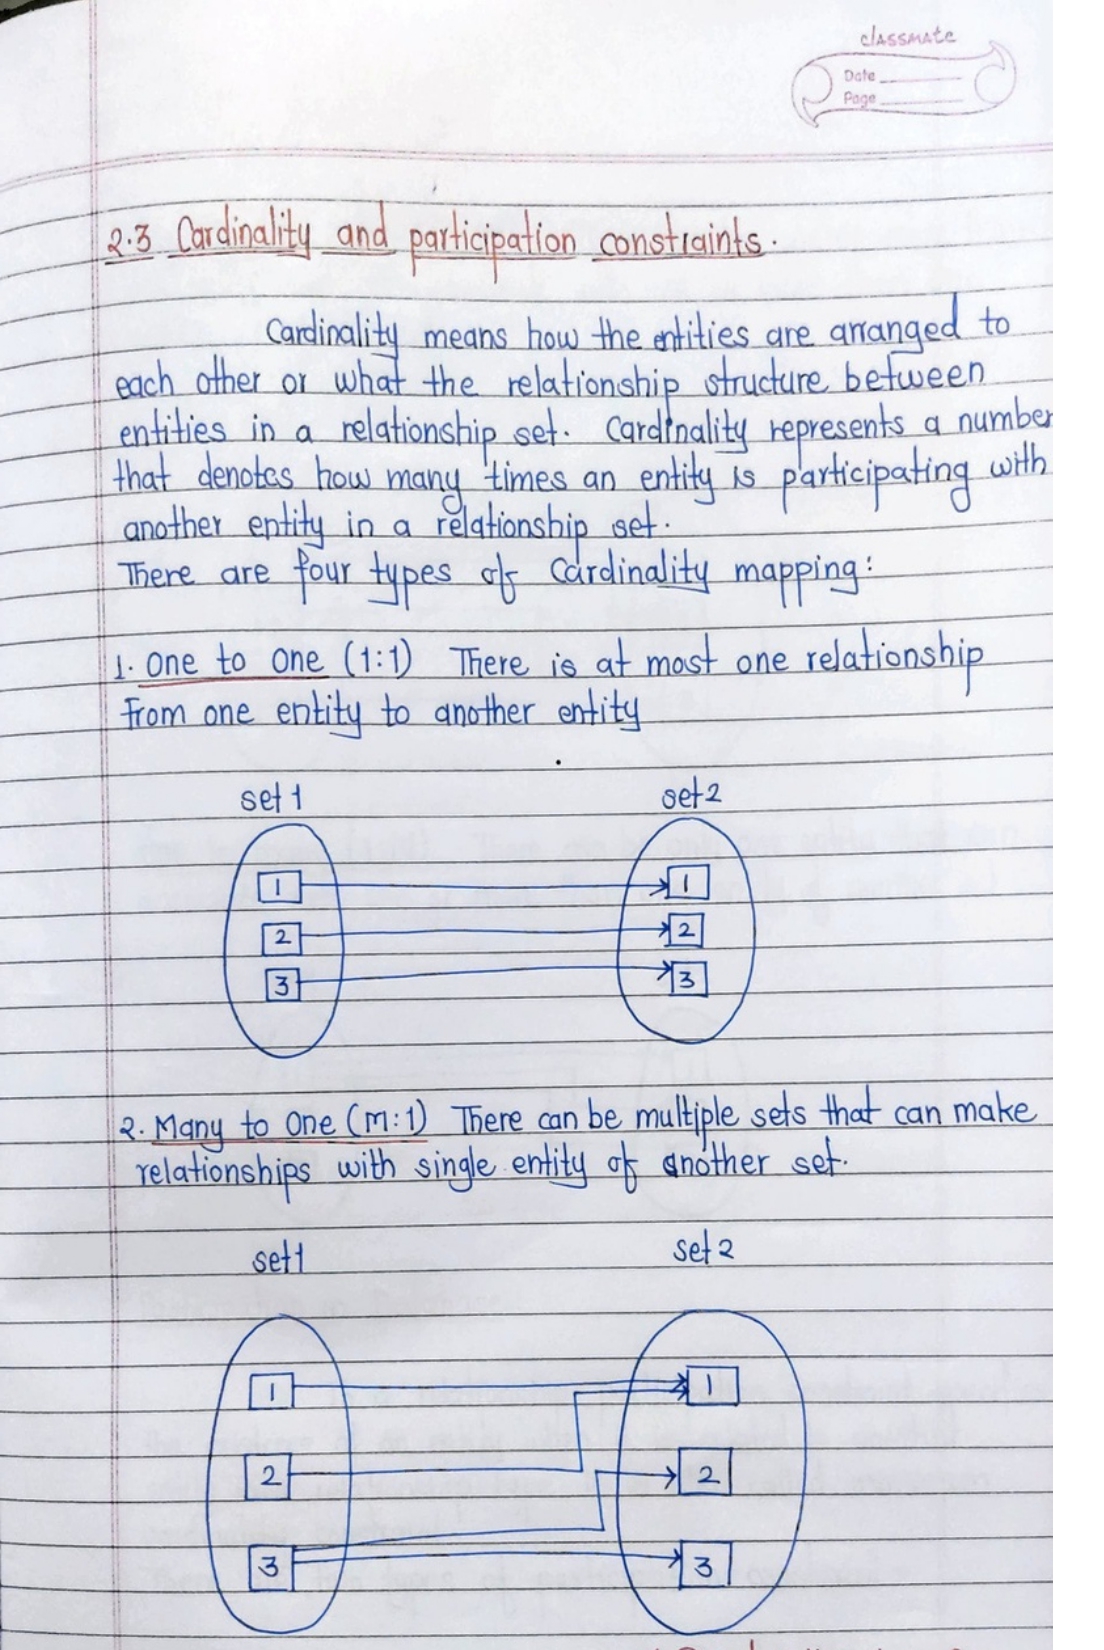 classmate
Date
Page
2.3 Cardinality and participation constraints.
Cardinality means how the entities are arranged to
each other or what the relationship structure between
entities in a relationship set. Cardinality represents a number
that denotes how many times an entity is participating with
another entity in a relationship set.
There are four types of Cardinality mapping:
1. One to One (1:1) There is at most one relationship
from one entity to another entity
set 1 set 2
1 1
2 2
3 3
2. Many to One (M:1) There can be multiple sets that can make
relationships with single entity of another set.
set 1 set 2
1 1
2 2
3 3